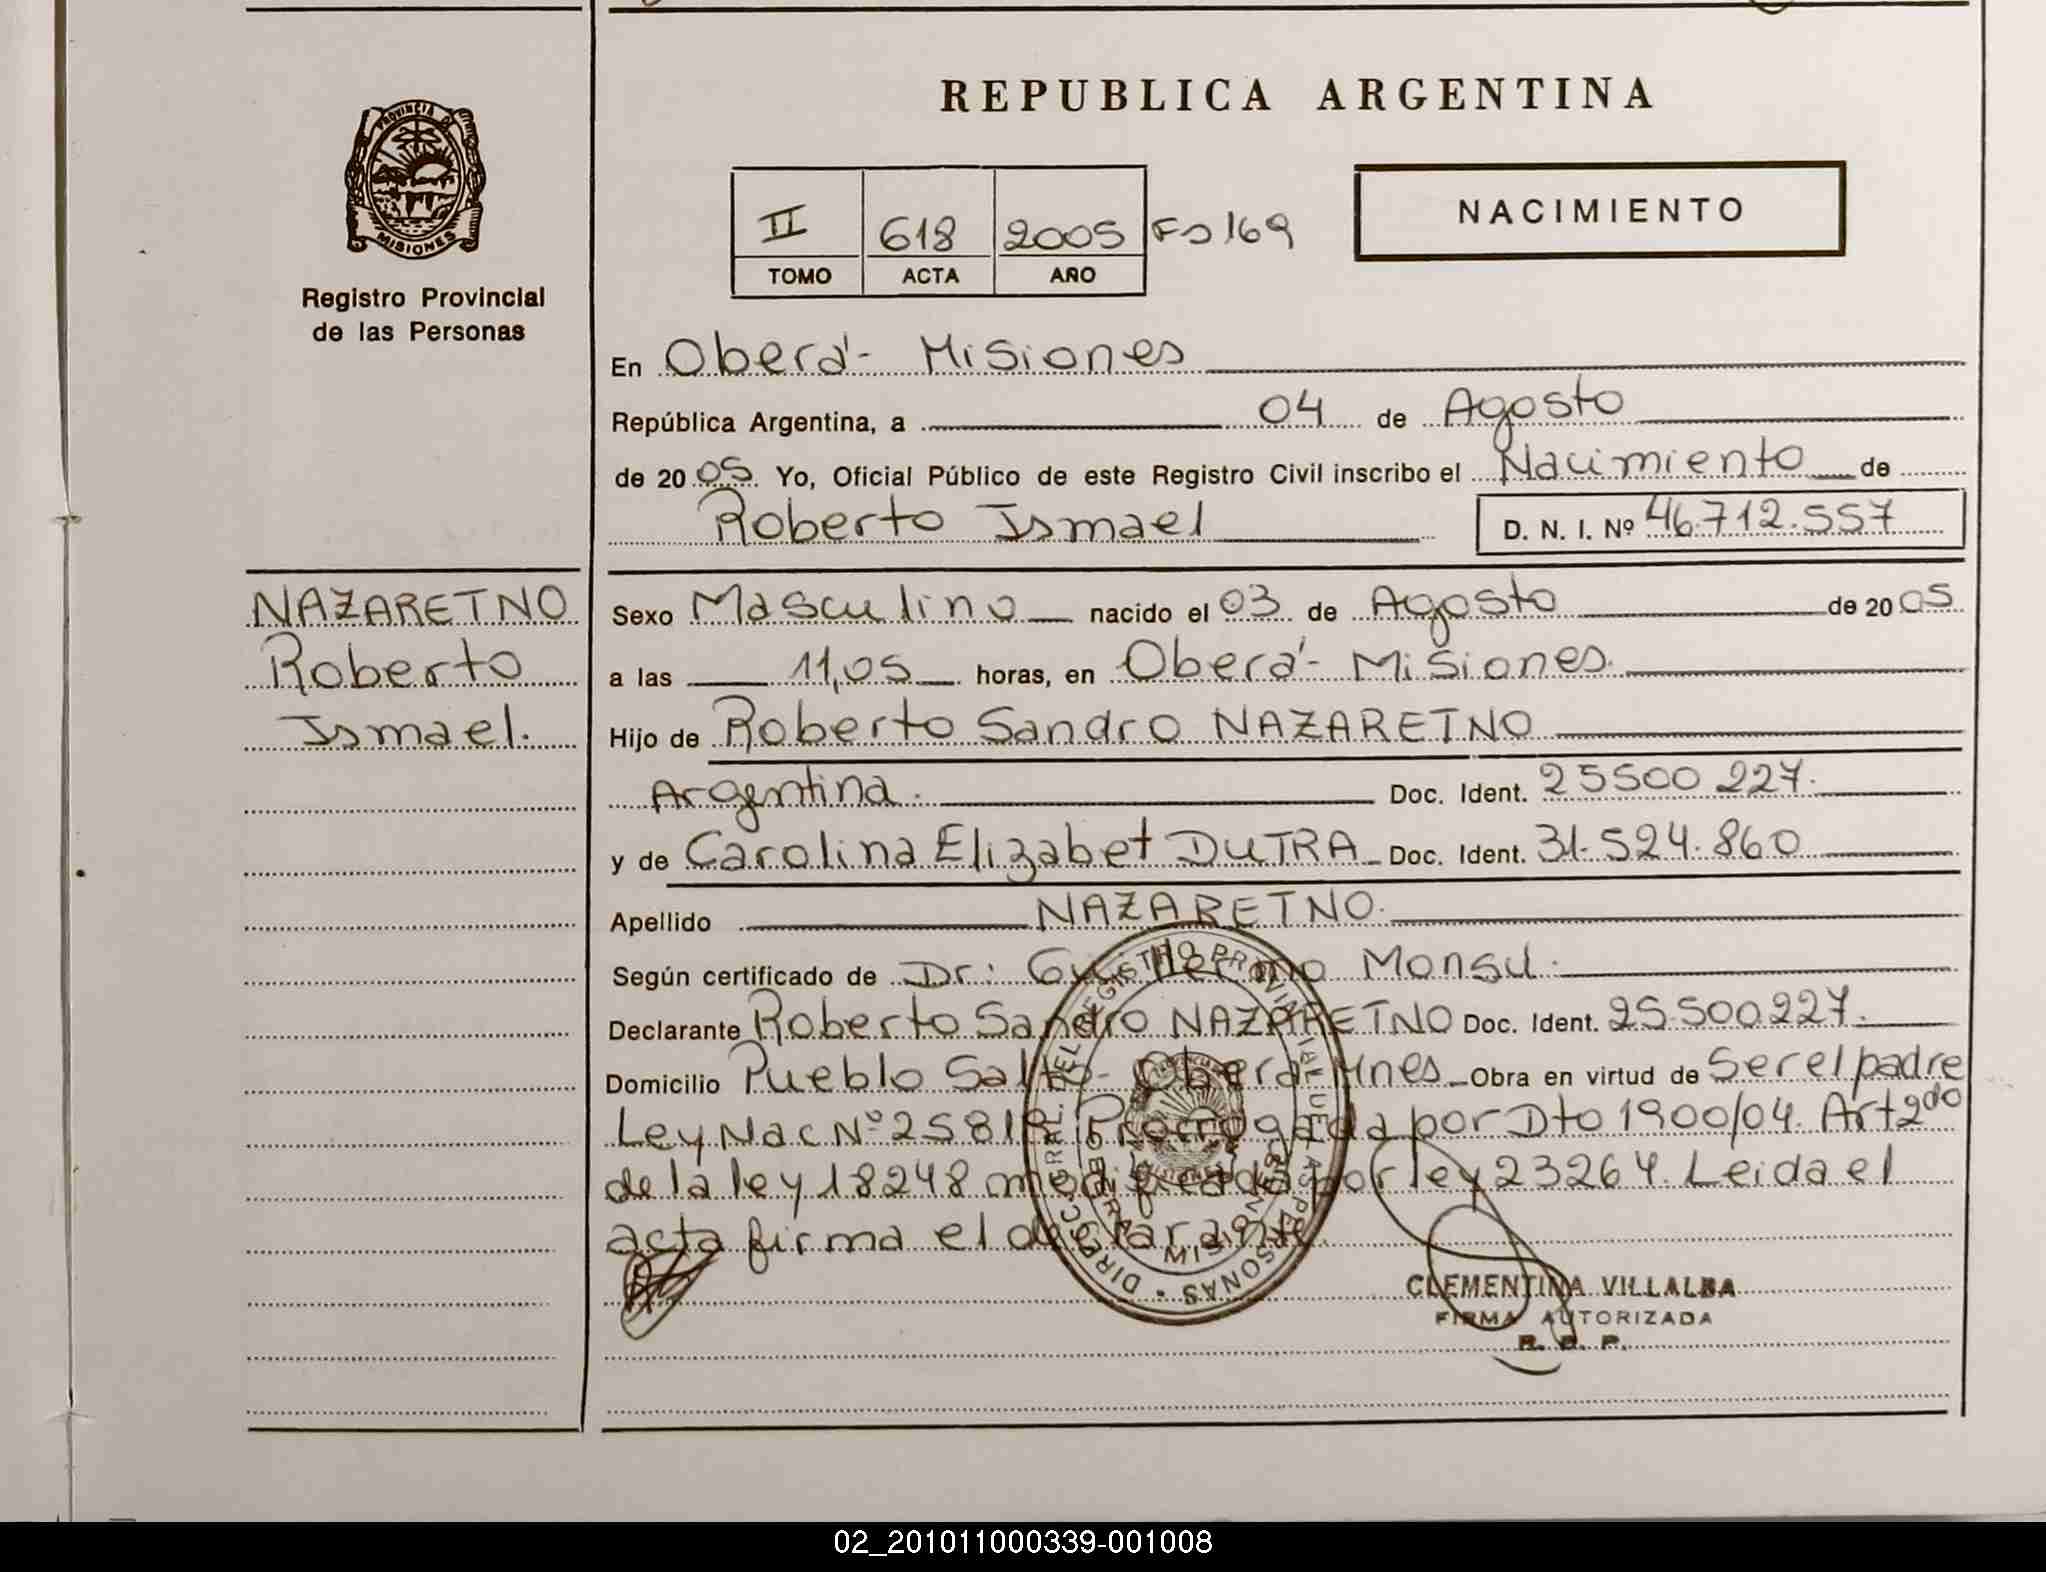 REPUBLICA ARGENTINA
PROVINCIA DE MISIONES
Registro Provincial
de las Personas
II 618 2005 Fº 169
TOMO ACTA AÑO
NACIMIENTO
En Oberá - Misiones
República Argentina, a 04 de Agosto
de 20 05 Yo, Oficial Público de este Registro Civil inscribo el Nacimiento de
Roberto Ismael D. N. I. Nº 46.712.557
NAZARETNO
Roberto
Ismael.
Sexo Masculino nacido el 03 de Agosto de 20 05
a las 11,05 horas, en Oberá - Misiones.
Hijo de Roberto Sandro NAZARETNO
Argentina. Doc. Ident. 25500 227.
y de Carolina Elizabet DUTRA Doc. Ident. 31.524.860
Apellido NAZARETNO.
Según certificado de Dr: Guillermo Monsu.
Declarante Roberto Sandro NAZARETNO Doc. Ident. 25.500.227.
Domicilio Pueblo Salto - Oberá Mnes Obra en virtud de Ser el padre
Ley Nac Nº 25819 Prorrogada por Dto 1900/04. Art 2do
de la ley 18248 modificada por ley 23264. Leida el
acta firma el declarante
DIRECC. GRAL. DEL REGISTRO PROVINCIAL DE LAS PERSONAS
MISIONES
CLEMENTINA VILLALBA
FIRMA AUTORIZADA
R. P. P.
02_201011000339-001008